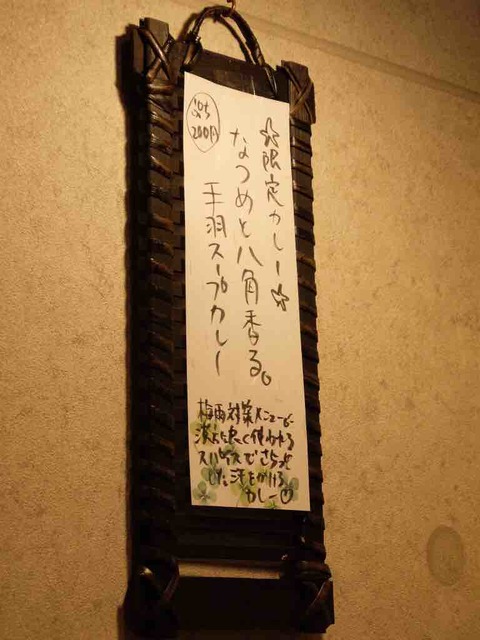 ☆限定カレー☆
なつめと八角香る。
手羽スープカレー
200円
梅雨対策メニュー
漢方に良く使われる
スパイスでさらっと
した汗をかける
カレー♡